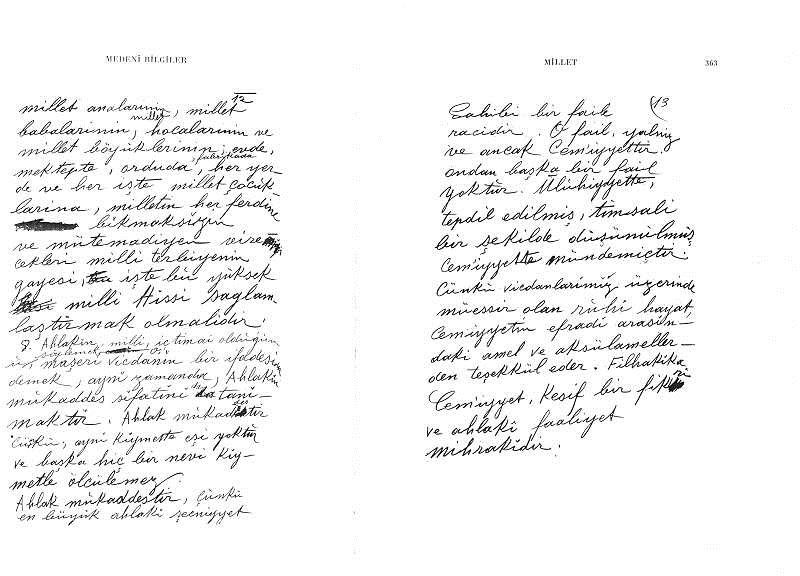 MEDENÎ BİLGİLER
12
millet analarının, millet
millet
babalarının, hocalarının ve
millet büyüklerinin; evde,
mektepte, orduda, fabrikada, her yer
de ve her işte millet çocuk
larına, milletin her ferdine
bıkmaksızın
ve mütemadiyen verecekleri
milli terbiyenin
gayesi, işte bu yüksek
milli Hissi sağlam
laştırmak olmalıdır.
Ahlakın, milli, içtimai olduğunu
söylemek
maşeri vicdanın bir ifadesidir
demek, ayni zamanda, Ahlakın
mükaddes sıfatını da tanı-
maktır. Ahlak mükaddestir
Çünkü, ayni kıymette eşi yoktur
ve başka hiç bir nevi kıy-
metle ölçülemez.
Ahlak mükaddestir, çünkü
en büyük ahlaki şeeniyyet
MİLLET
363
13
Sahibi bir faile
racidir. O fail, yalnız
ve ancak Cemiyyettir.
ondan başka bir fail
yoktur. Ulûhiyyette,
tepdil edilmiş, timsali
bir şekilde düşünülmüş
Cemiyyette mündemiçtir.
Çünkü vicdanlarımız üzerinde
müessir olan rûhî hayat,
Cemiyyetin efradı arasın-
daki amel ve aksülameller-
den teşekkül eder. Filhakika
Cemiyyet, kesif bir fikri
ve ahlakî faaliyet
mihrakıdır.